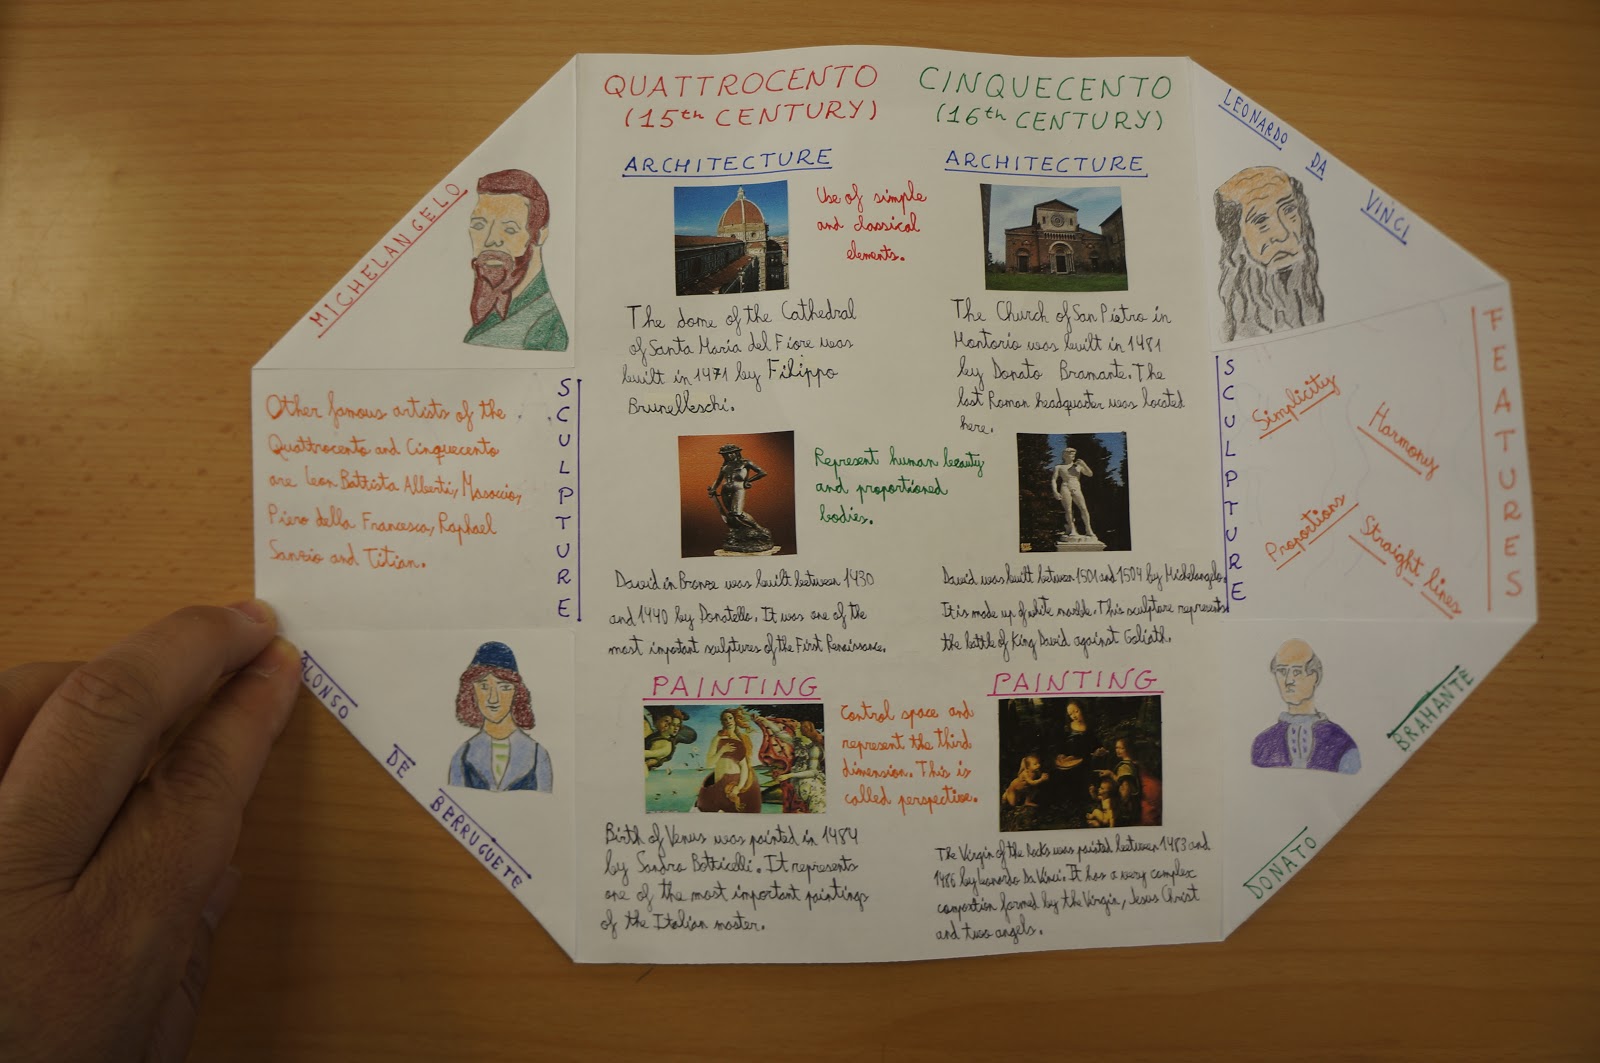 MICHELANGELO
Other famous artists of the
Quattrocento and Cinquecento
are Leon Battista Alberti, Masaccio,
Piero della Francesca, Raphael
Sanzio and Titian.
SCULPTURE
ALONSO DE BERRUGUETE
QUATTROCENTO
(15th CENTURY)
ARCHITECTURE
Use of simple
and classical
elements.
The dome of the Cathedral
of Santa María del Fiore was
built in 1471 by Filippo
Brunelleschi.
Represent human beauty
and proportioned
bodies.
David in Bronze was built between 1430
and 1440 by Donatello. It was one of the
most important sculptures of the First Renaissance.
PAINTING
Control space and
represent the third
dimension. This is
called perspective.
Birth of Venus was painted in 1484
by Sandro Botticelli. It represents
one of the most important paintings
of the Italian master.
CINQUECENTO
(16th CENTURY)
ARCHITECTURE
The Church of San Pietro in
Montorio was built in 1481
by Donato Bramante. The
last Roman headquarter was located
here.
David was built between 1501 and 1504 by Michelangelo.
It is made up of white marble. This sculpture represents
the battle of King David against Goliath.
PAINTING
The Virgin of the Rocks was painted between 1483 and
1486 by Leonardo Da Vinci. It has a very complex
composition formed by the Virgin, Jesus Christ
and two angels.
LEONARDO DA VINCI
SCULPTURE
FEATURES
Simplicity
Harmony
Proportions
Straight lines
DONATO BRAMANTE